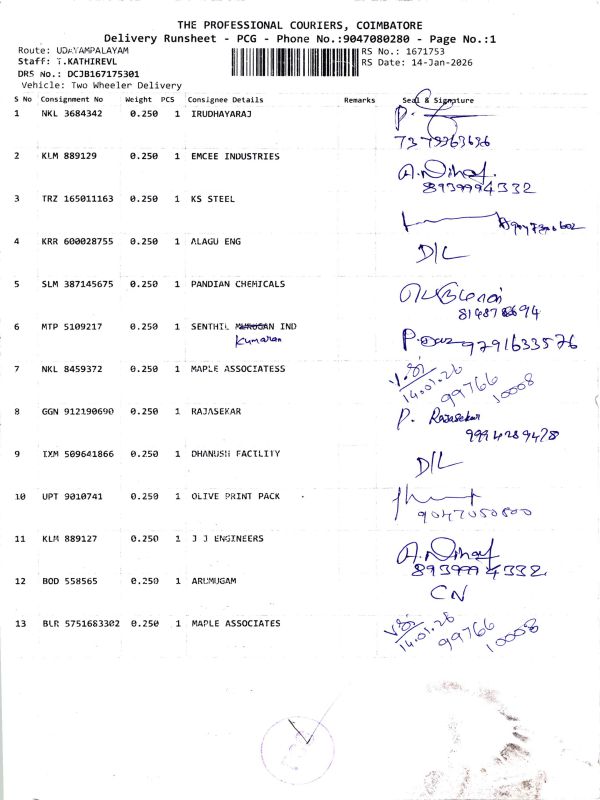 THE PROFESSIONAL COURIERS, COIMBATORE
Delivery Runsheet - PCG - Phone No.:9047080280 - Page No.:1
Route: UDAYAMPALAYAM RS No.: 1671753
Staff: T.KATHIREVL RS Date: 14-Jan-2026
DRS No.: DCJB167175301
Vehicle: Two Wheeler Delivery
S No Consignment No Weight PCS Consignee Details Remarks Seal & Signature
1 NKL 3684342 0.250 1 IRUDHAYARAJ P.
2 KLM 889129 0.250 1 EMCEE INDUSTRIES A.Nihaf.
8939994332
3 TRZ 165011163 0.250 1 KS STEEL
4 KRR 600028755 0.250 1 ALAGU ENG D/L
5 SLM 387145675 0.250 1 PANDIAN CHEMICALS
6 MTP 5109217 0.250 1 SENTHIL MURUGAN IND
Kumaran 9791633576
7 NKL 8459372 0.250 1 MAPLE ASSOCIATESS
14.01.26 99766 10008
8 GGN 912190690 0.250 1 RAJASEKAR P. Rajasekar
9994289478
9 IXM 509641866 0.250 1 DHANUSH FACILITY D/L
10 UPT 9010741 0.250 1 OLIVE PRINT PACK
9047050800
11 KLM 889127 0.250 1 J J ENGINEERS A.Nihaf
8939994332
12 BOD 558565 0.250 1 ARUMUGAM CN
13 BLR 5751683302 0.250 1 MAPLE ASSOCIATES
14.01.26 99766 10008